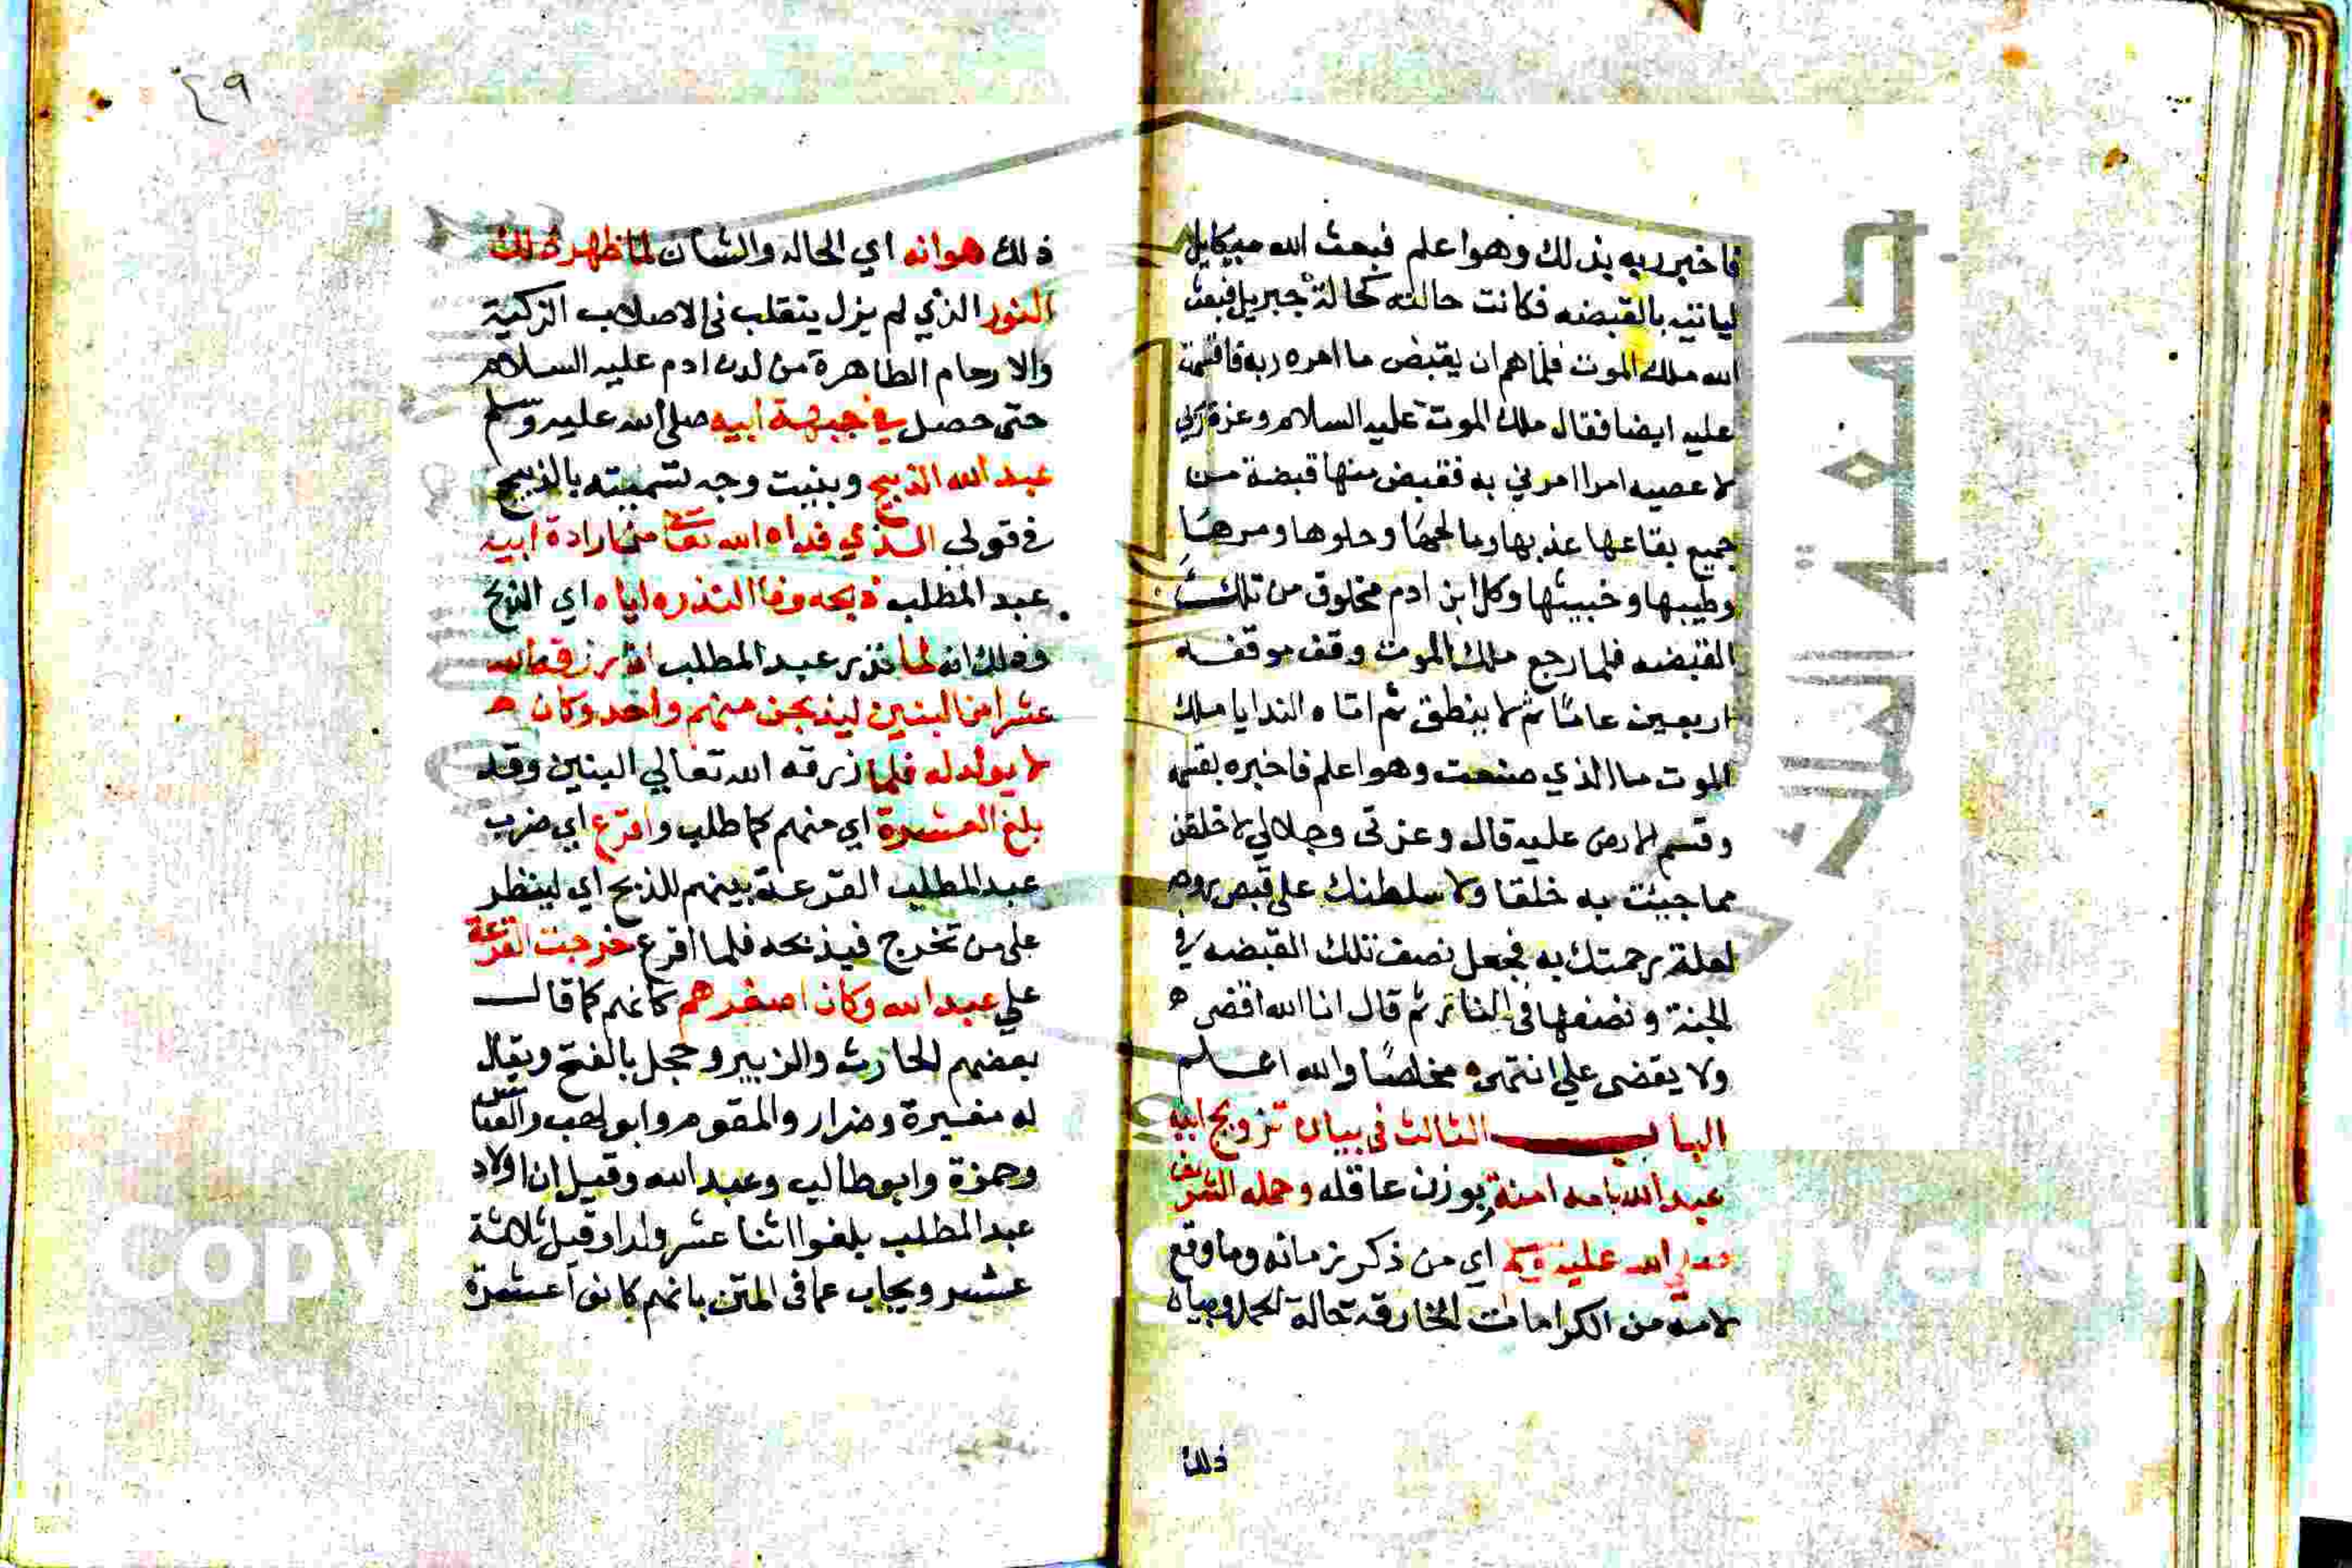 فاخبر ربه بذلك وهو اعلم فبعث الله ميكايل
لياتيه بالقبضه فكانت حالته كحالة جبريل فبعث
الله ملك الموت فلما هم ان يقبض ما امره ربه فاقسمت
عليه ايضا فقال ملك الموت عليه السلام وعزة ربي
لا عصيه امرا امرني به فقبض منها قبضة من
جميع بقاعها عذبها ومالحها وحلوها ومرها
وطيبها وخبيثها وكل ابن ادم مخلوق من تلك
القبضه فلما رجع ملك الموت وقف موقفه
اربعين عاما ثم لا ينطق ثم اتاه الندا يا ملك
الموت ما الذي صنعت وهو اعلم فاخبره بقسمه
وقسم الارض عليه قال وعزتي وجلالي لاخلقن
مما جيئت به خلقا ولاسلطنك على قبض روحه
لعلة رحمتك به فجعل نصف تلك القبضه في
الجنة ونصفها في النار ثم قال انا الله اقضي
ولا يقضى علي انتهى مخلصا والله اعلم
الباب الثالث في بيان تزويج ابيه
عبد الله بامه امنة بوزن عاقله وحمله الشريف
صلى الله عليه وسلم اي من ذكر زمانه وما وقع
لامه من الكرامات الخارقه حالة الحمل وبيان
ذلك
٤٩
ذلك هو انه اي الحاله والشان لما ظهر ذلك
النور الذي لم يزل ينقلب في الاصلاب الزكية
والارحام الطاهرة من لدن ادم عليه السلام
حتى حصل في جبهة ابيه صلى الله عليه وسلم
عبد الله الذبيح وبينت وجه تسميته بالذبيح
في قولي الذي فداه الله تعا من ارادة ابيه
عبد المطلب ذبحه وفا النذره اياه اي الذبح
وذلك انه لما نذر عبد المطلب ان رزقه الله
عشرا من البنين ليذبحن منهم واحد وكان
لا يولد له فلما رزقه الله تعالي البنين وقد
بلغ العشرة اي منهم كما طلب واقرع اي ضرب
عبد المطلب القرعة بينهم للذبح اي لينظر
على من تخرج فيذبحه فلما اقرع خرجت القرعة
علي عبد الله وكان اصغرهم كاغنم كما قال
بعضهم الحارث والزبير وحجل بالفتح ويقال
له مغيرة وضرار والمقوم وابو لهب والعباس
وحمزة وابو طالب وعبد الله وقيل ان اولاد
عبد المطلب بلغوا اثنا عشر ولدا وقيل ثلاثة
عشر ويجاب عما في المتن بانهم كانوا عشرة
جامعة الملك
Copy
iversity